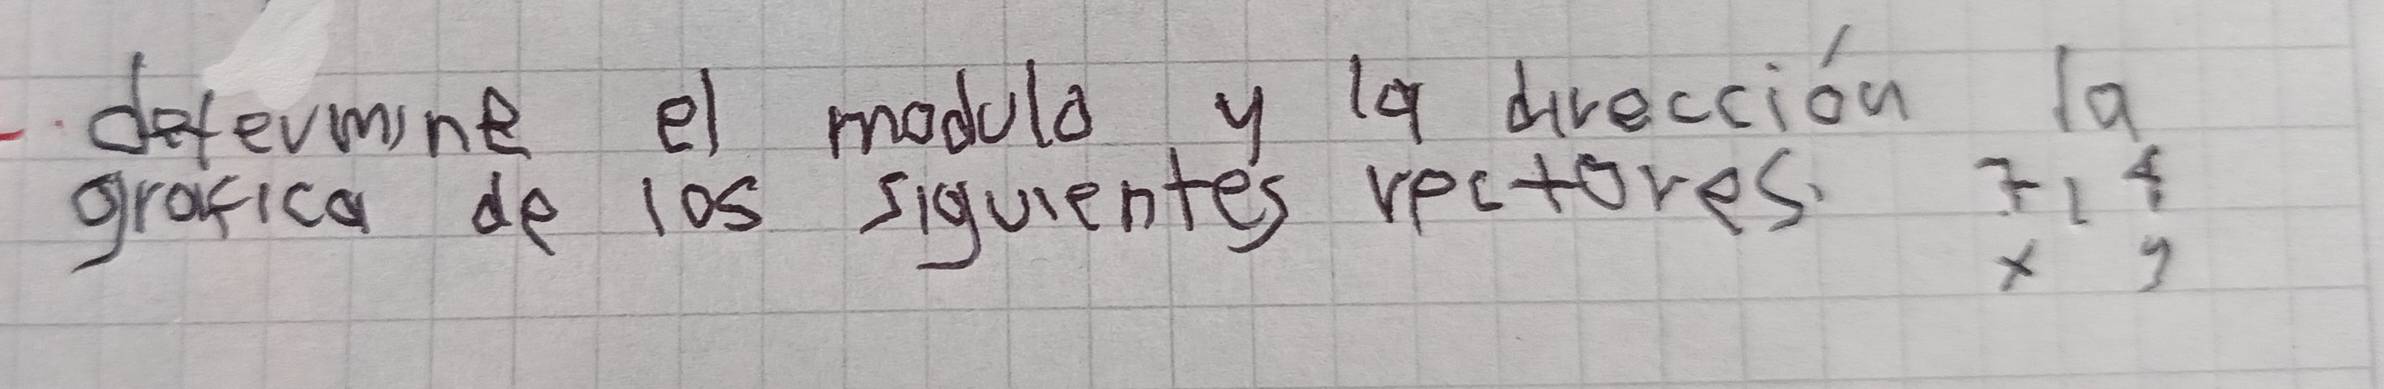 determine el modulo y la dirección la
grafica de los siguientes vectores. 7, 4
x y